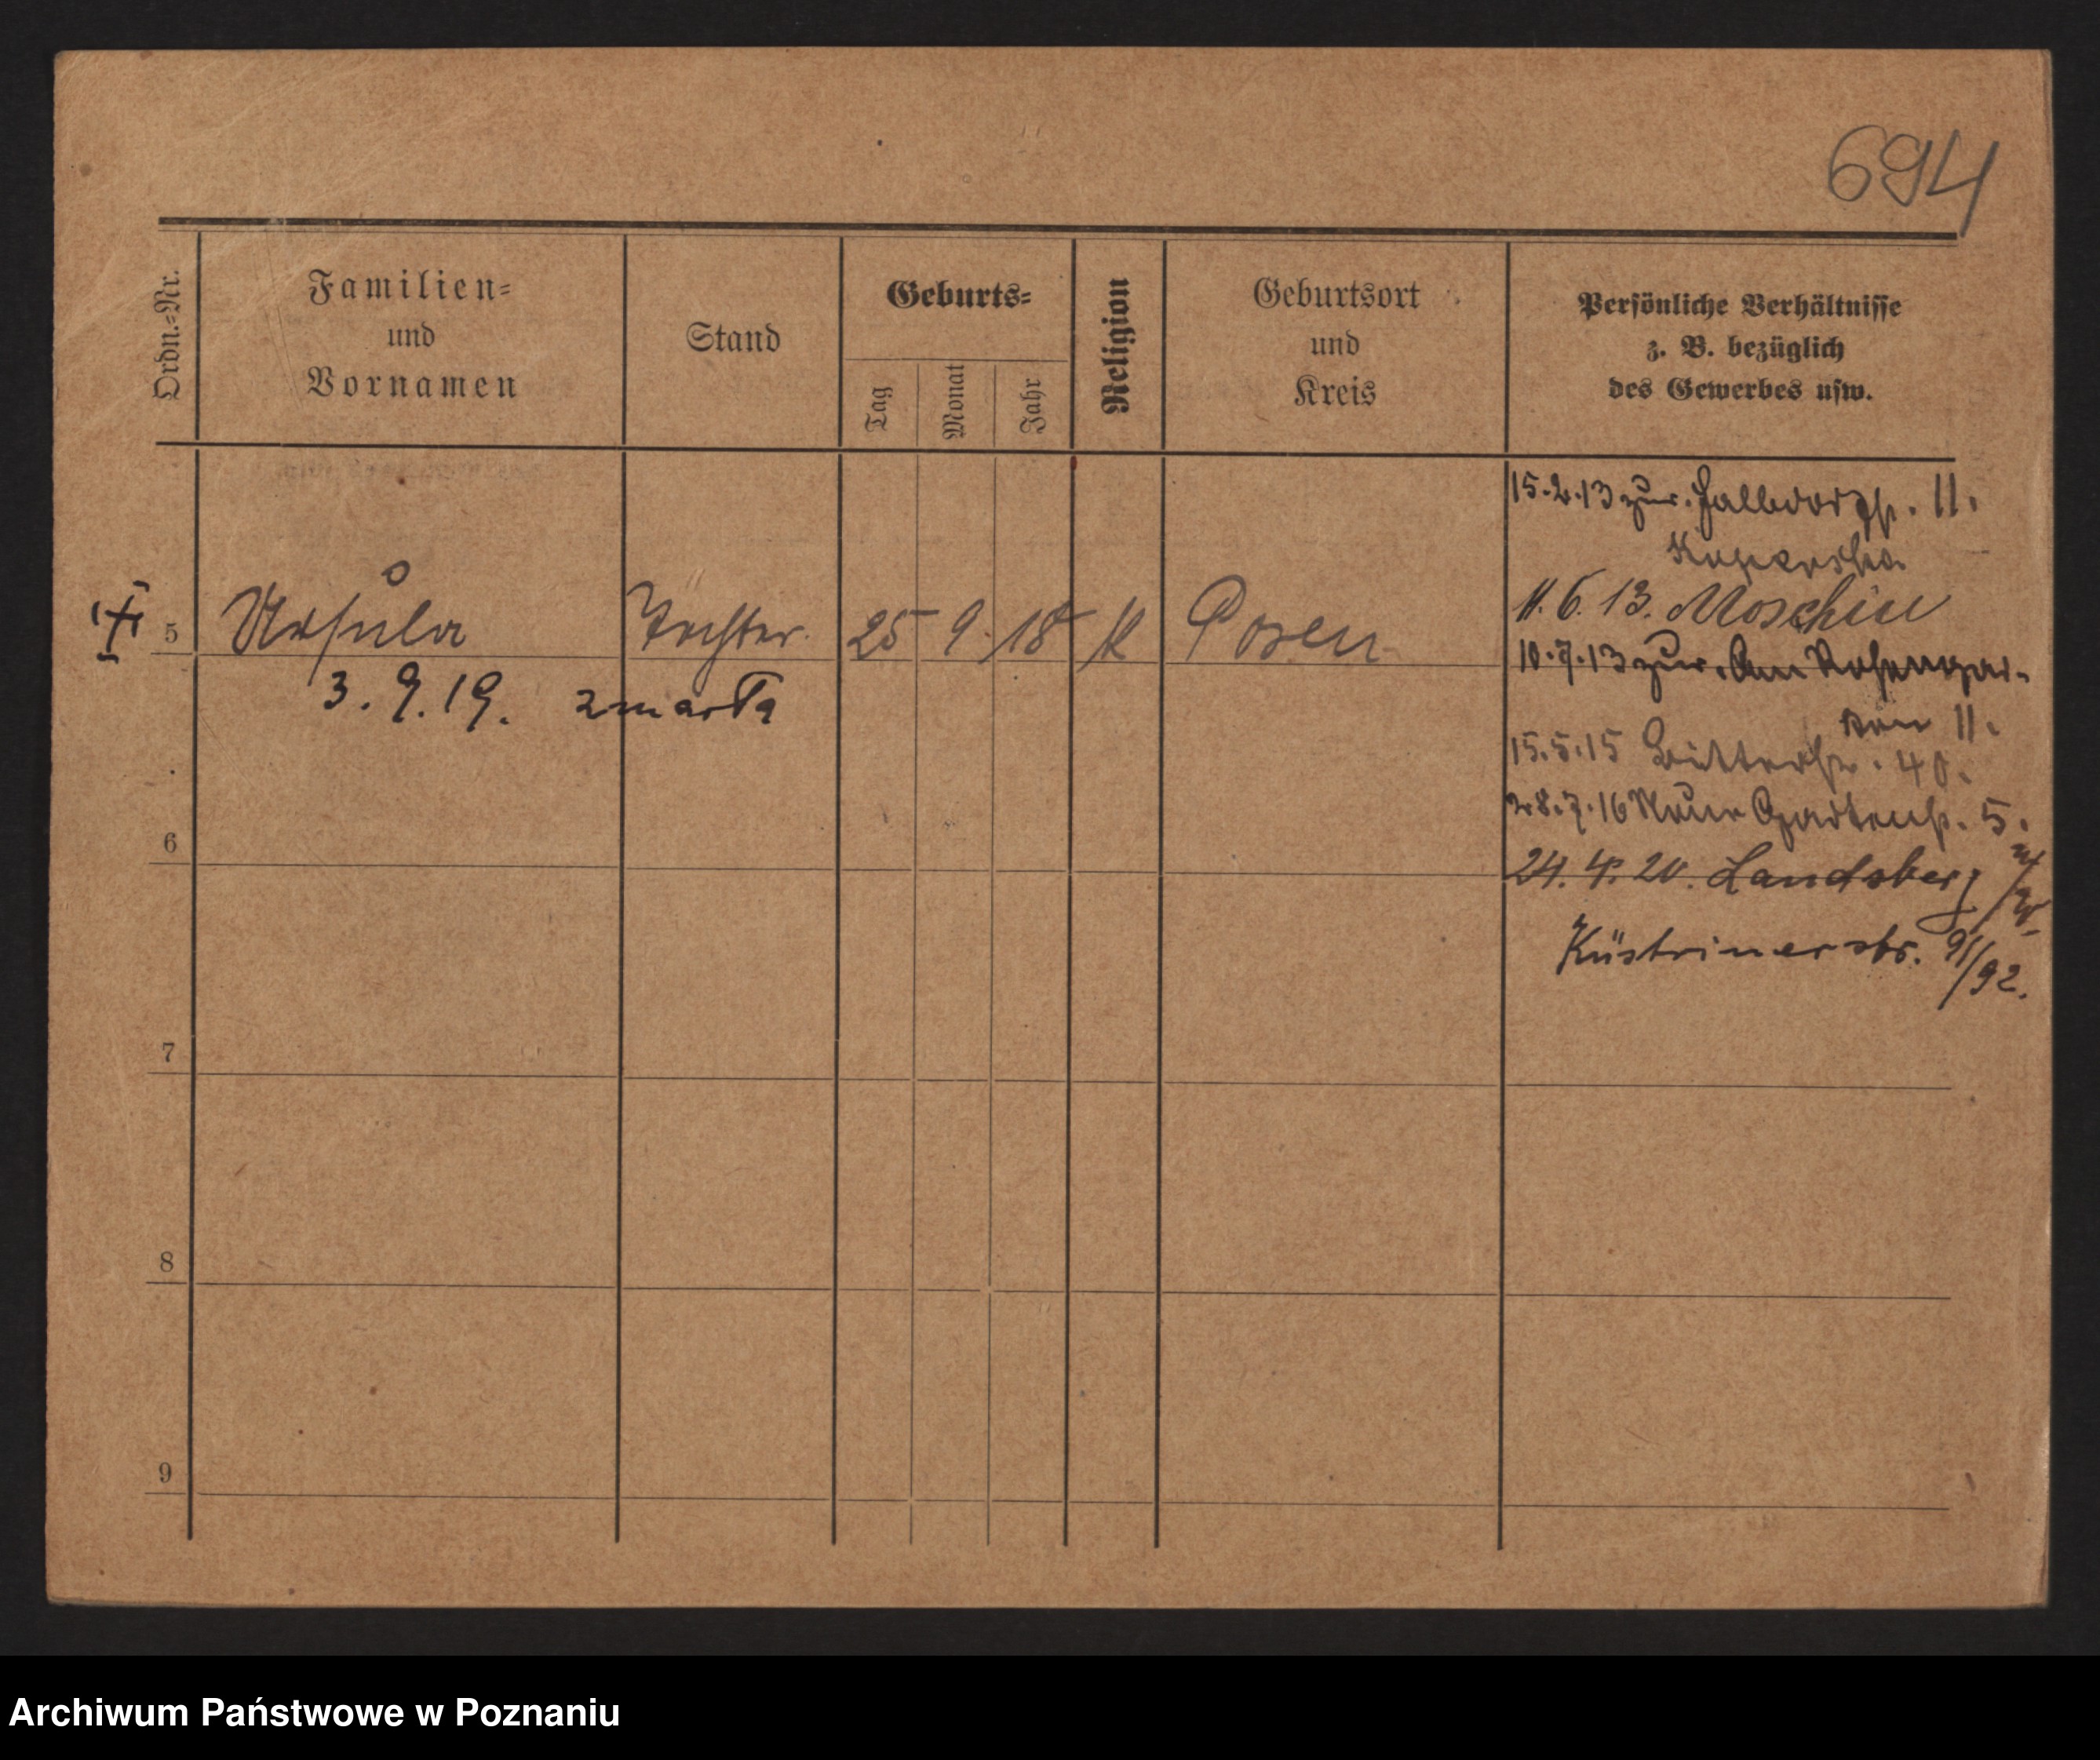 694
Ordn.-Nr.
Familien-
und
Vornamen
Stand
Geburts-
Tag
Monat
Jahr
Religion
Geburtsort
und
Kreis
Persönliche Verhältnisse
z. B. bezüglich
des Gewerbes usw.
15.2.13 zur. Halbdorfstr. 11.
11. 6. 13. Moschin
5 Ursula Tochter 25 9. 18 K Posen
3. 9. 19. zmarła
10.7.13 zur. Am Rosengar-
ten 11.
15.5.15 Bitterstr. 40.
28.7.16 Neue Gartenstr. 5.
6
24. 4. 20. Landsberg
Küstrinerstr. 91/92.
7
8
9
Archiwum Państwowe w Poznaniu